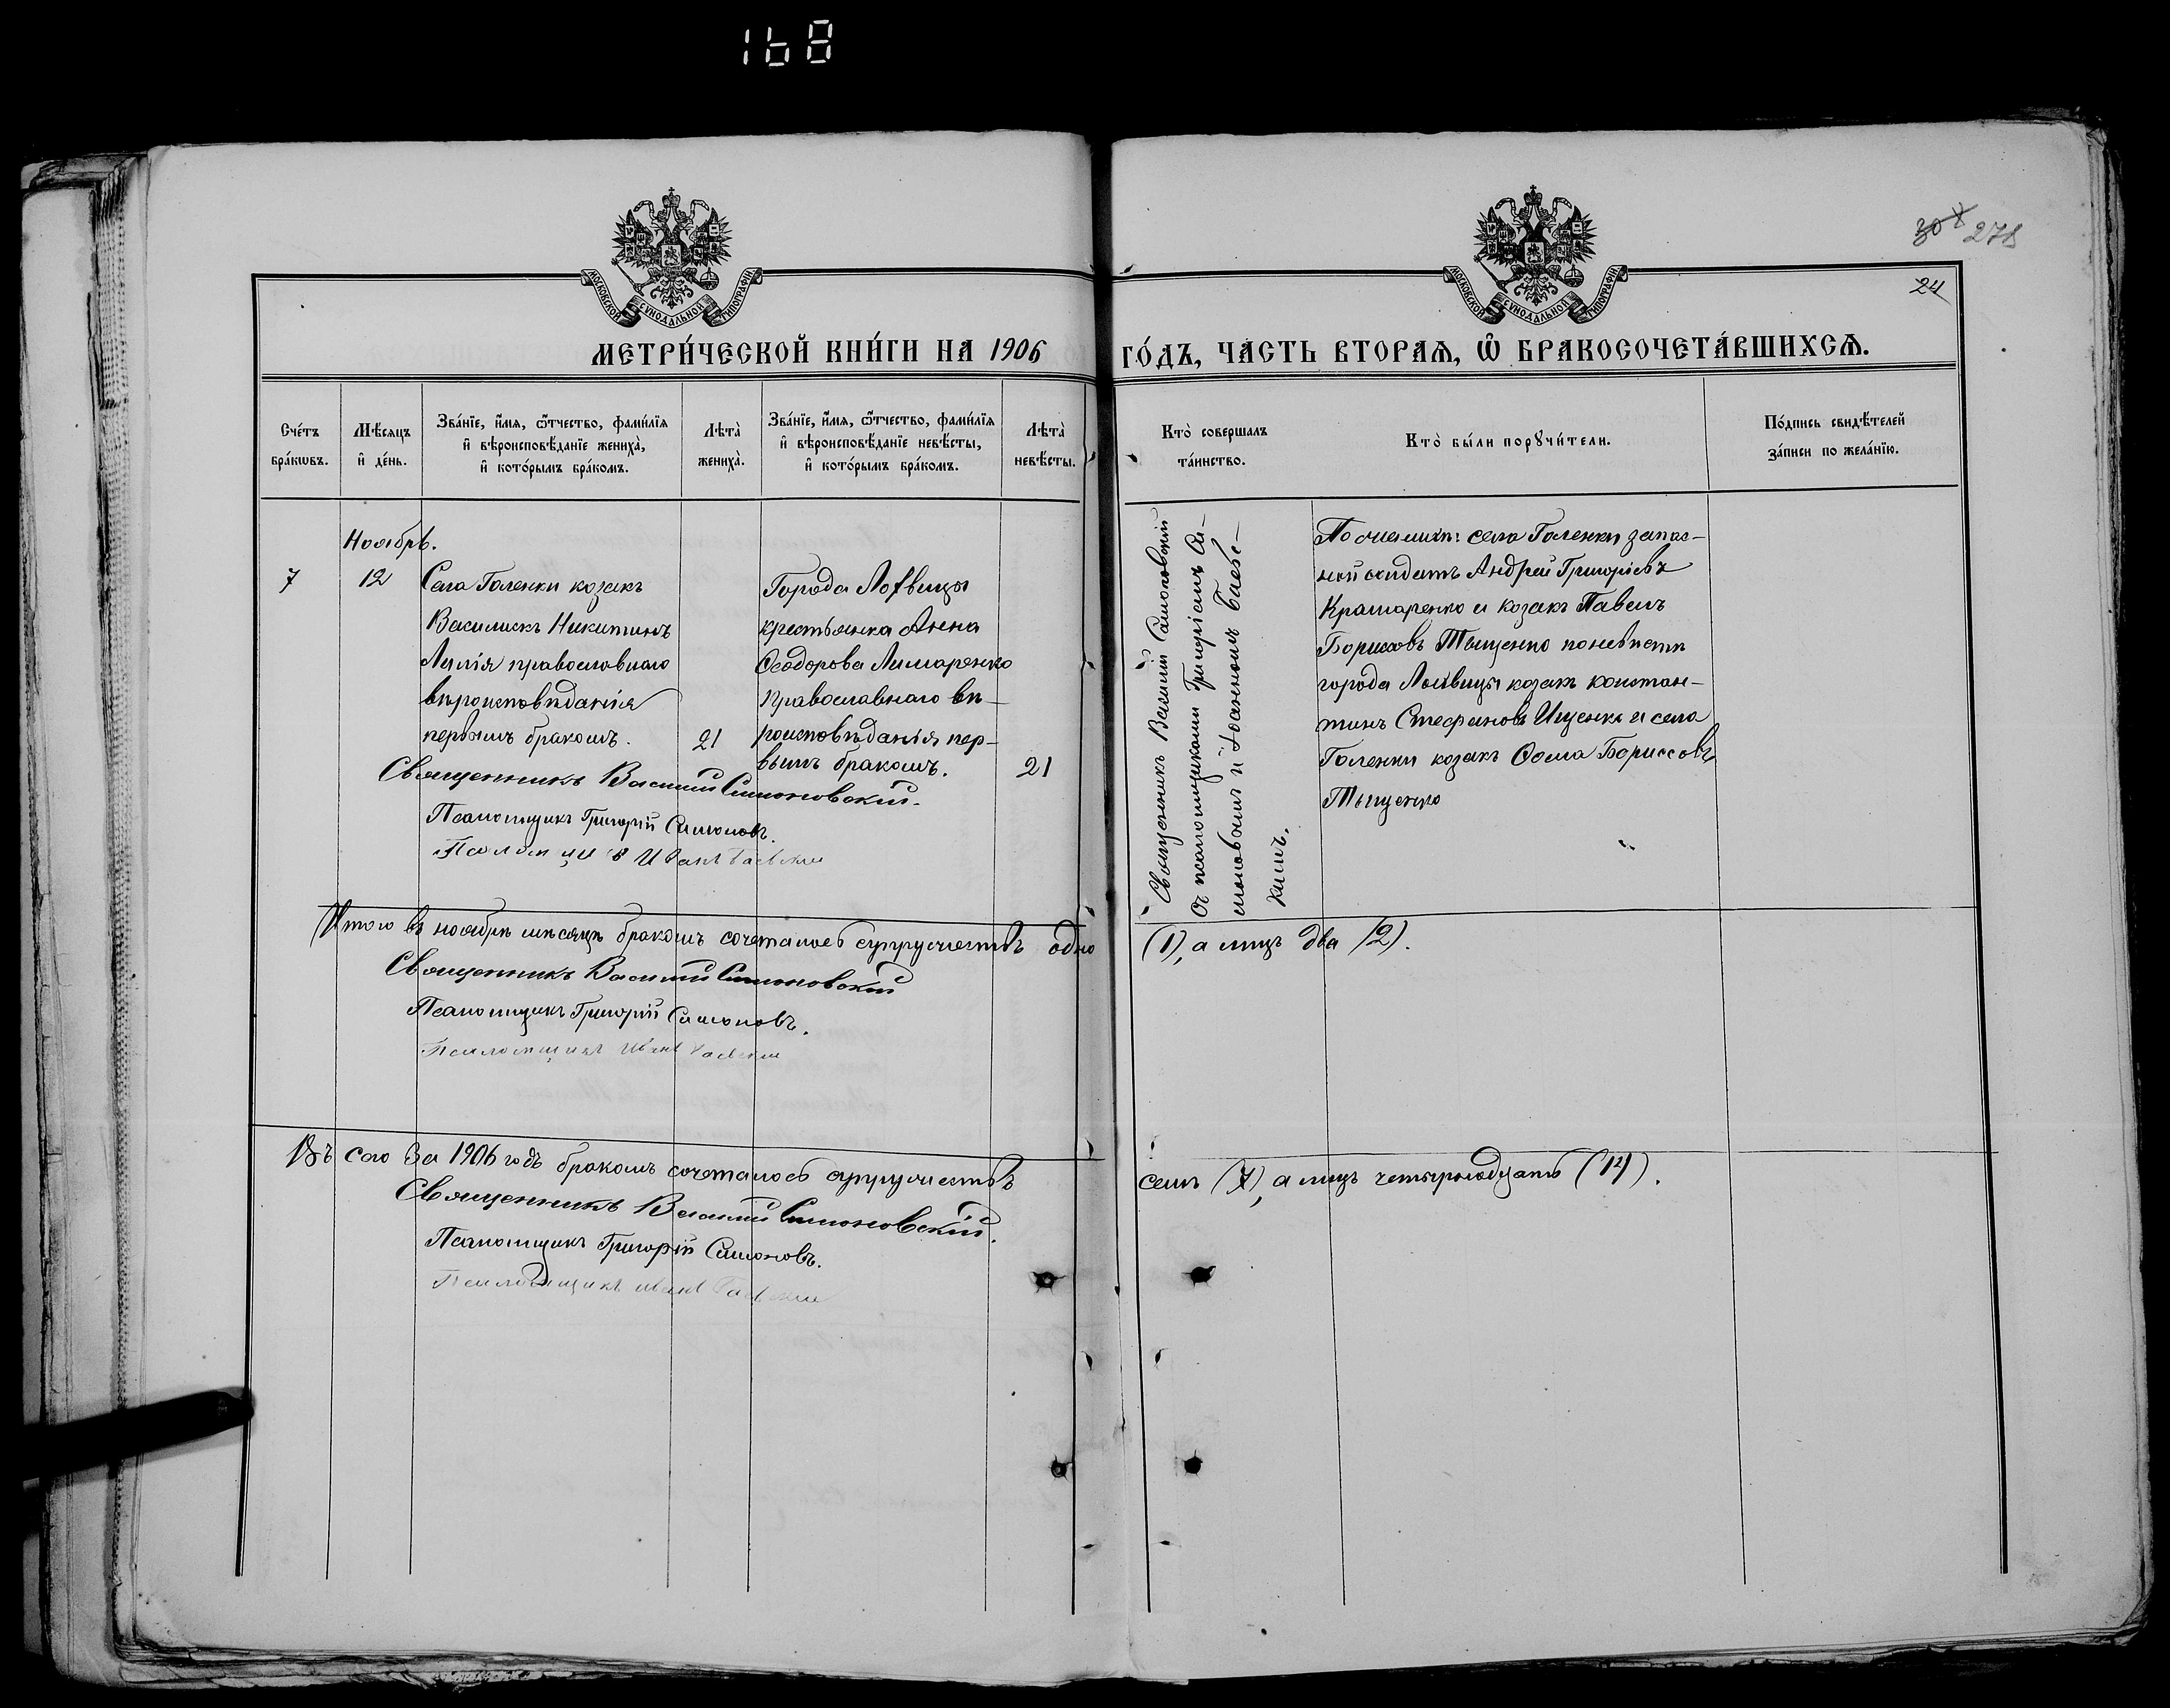 168
30X 278
24
МОСКОВСКОЙ СУНОДАЛЬНОЙ ТИПОГРАФІИ
МОСКОВСКОЙ СУНОДАЛЬНОЙ ТИПОГРАФІИ
МЕТРИ́ЧЕСКОЙ КНИ́ГИ НА 1906 ГО́ДЪ, ЧА́СТЬ ВТОРАѦ, Ѡ҆ БРАКОСОЧЕТА́ВШИХСѦ.
Сче́тъ
бра́кѡвъ.
Мѣ́сяцъ
и҆ де́нь.
Зва́нїе, и҆́мя, ѻ҆́тчество, фами́лїя
и҆ вѣроисповѣ́данїе жениха̀,
и҆ кото́рымъ бра́комъ.
Лѣта̀
жениха̀.
Зва́нїе, и҆́мя, ѻ҆́тчество, фами́лїя
и҆ вѣроисповѣ́данїе невѣ́сты,
и҆ кото́рымъ бра́комъ.
Лѣта̀
невѣ́сты.
Кто̀ совершалъ
та́инство.
Кто̀ бы́ли порꙋчи́тели.
По́дпись свидѣ́телей
за́писи по жела́нїю.
Ноябрь.
7
12
Села Галенки козакъ
Василискъ Никитинъ
православнаго
вѣроисповѣданія
первымъ бракомъ.
21
Города Лохвицы
крестьянка Анна
Ѳеодорова Лимаренко
православнаго вѣ-
роисповѣданія пер-
вымъ бракомъ.
21
Священникъ Василій Симоновскій.
Псаломщикъ Григорій Самоновъ.
Псаломщикъ Иванъ Гаевскій
Священникъ Василій Симоновскій
съ псаломщиками Григоріемъ Са-
моновымъ и Іоанномъ Гаевс-
кимъ.
По женихѣ: села Галенки запас-
ной солдатъ Андрей Григоріевъ
Крамаренко и козакъ Павелъ
Борисовъ Тыщенко по невѣстѣ
города Лохвицы козакъ Констан-
тинъ Стефановъ Ищенко и села
Галенки козакъ Ѳома Борисовъ
Тыщенко
Итого въ ноябрѣ мѣсяцѣ бракомъ сочеталось супружествъ одно (1), а лицъ два (2).
Священникъ Василій Симоновскій
Псаломщикъ Григорій Самоновъ.
Псаломщикъ Иванъ Гаевскій
Въ сего за 1906 годъ бракомъ сочеталось супружествъ семь (7), а лицъ четырнадцать (14).
Священникъ Василій Симоновскій.
Псаломщикъ Григорій Самоновъ.
Псаломщикъ Иванъ Гаевскій